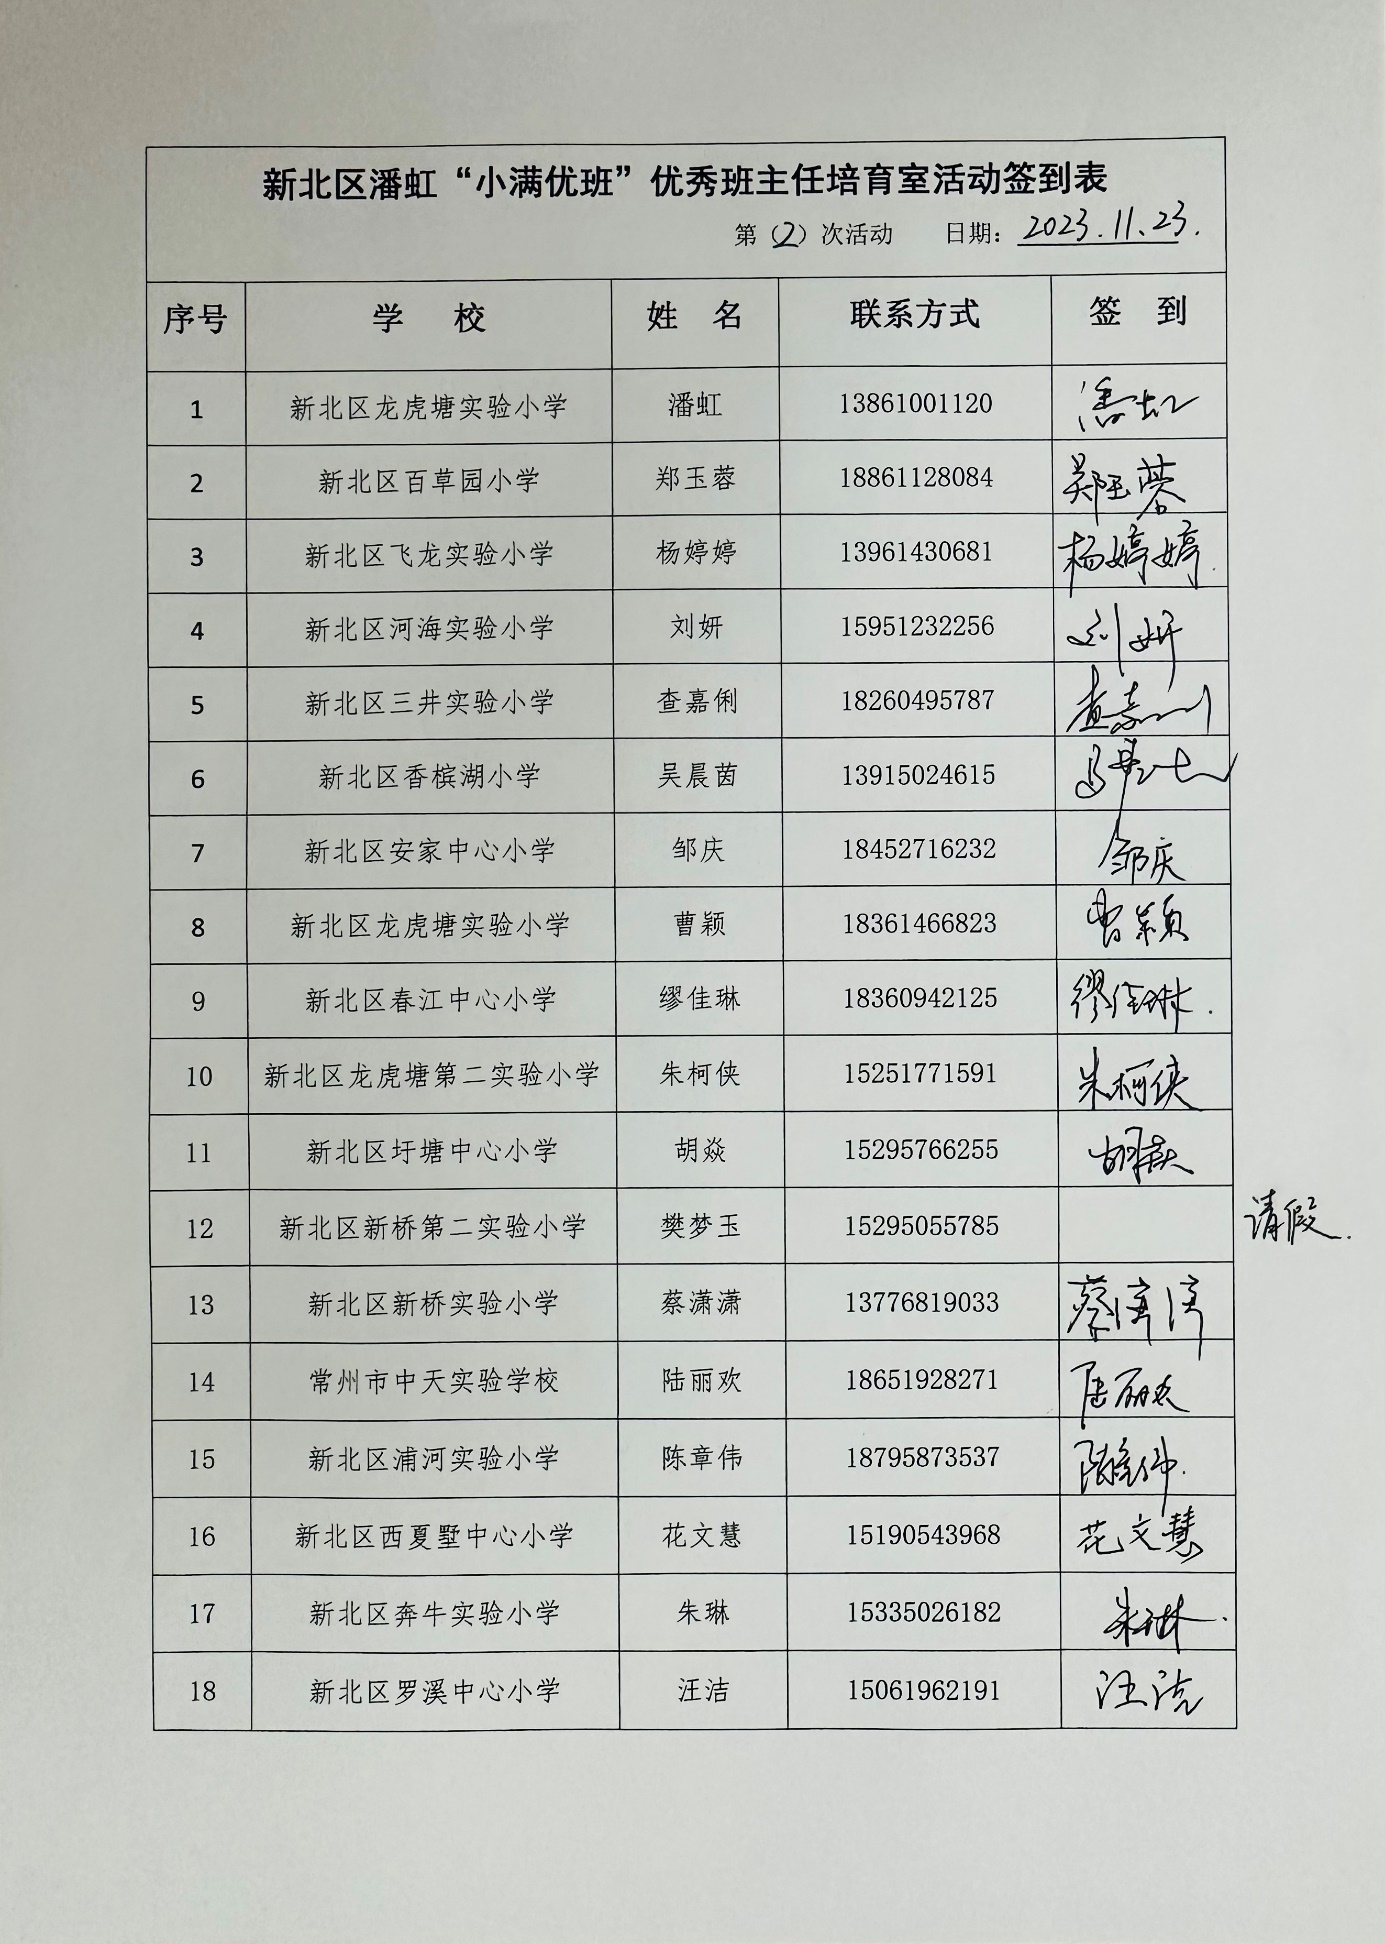 新北区潘虹“小满优班”优秀班主任培育室活动签到表
第（2）次活动 日期：2023.11.23.
序号 学 校 姓 名 联系方式 签 到
1 新北区龙虎塘实验小学 潘虹 13861001120 潘虹
2 新北区百草园小学 郑玉蓉 18861128084 郑玉蓉
3 新北区飞龙实验小学 杨婷婷 13961430681 杨婷婷.
4 新北区河海实验小学 刘妍 15951232256 刘妍
5 新北区三井实验小学 查嘉俐 18260495787 查嘉俐
6 新北区香槟湖小学 吴晨茵 13915024615
7 新北区安家中心小学 邹庆 18452716232 邹庆
8 新北区龙虎塘实验小学 曹颖 18361466823 曹颖
9 新北区春江中心小学 缪佳琳 18360942125 缪佳琳.
10 新北区龙虎塘第二实验小学 朱柯侠 15251771591 朱柯侠
11 新北区圩塘中心小学 胡焱 15295766255 胡焱
12 新北区新桥第二实验小学 樊梦玉 15295055785 请假.
13 新北区新桥实验小学 蔡潇潇 13776819033 蔡潇潇
14 常州市中天实验学校 陆丽欢 18651928271 陆丽欢
15 新北区浦河实验小学 陈章伟 18795873537 陈章伟.
16 新北区西夏墅中心小学 花文慧 15190543968 花文慧
17 新北区奔牛实验小学 朱琳 15335026182 朱琳.
18 新北区罗溪中心小学 汪洁 15061962191 汪洁